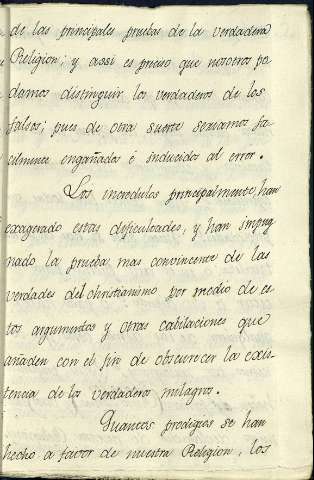 de las principales pruebas de la verdadera
Religion; y assi es preciso que nosotros po
damos distinguir los verdaderos de los
falsos; pues de otra suerte seriamos fa
cilmente engañados è inducidos al error.
Los incredulos principalmente, han
exagerado estas dificultades, y han impug
nado la prueba mas convincente de las
verdades del christianismo por medio de es-
tos argumentos y otras cabilaciones que
añaden con el fin de obscurecer la exis-
tencia de los verdaderos milagros.
Quantos prodigios se han
hecho a favor de nuestra Religion, los